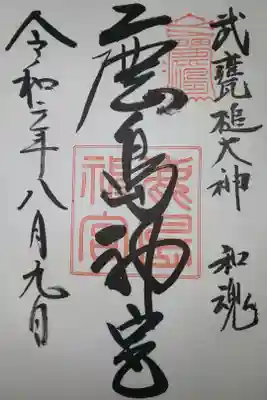 武甕槌大神　和魂
鹿島神宮
令和二年八月九日
鹿島
神宮